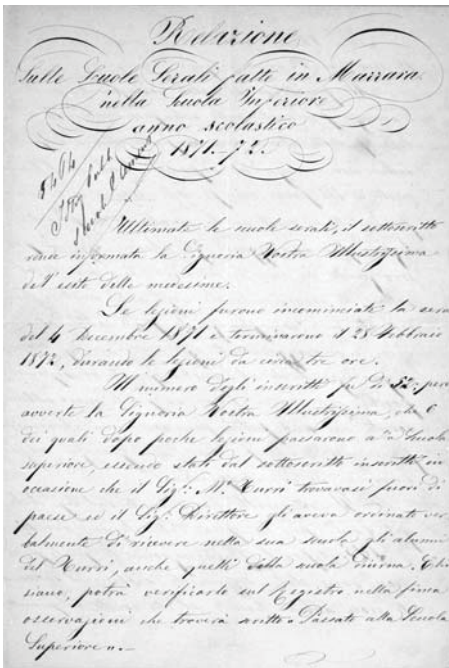 Relazione
Sulle Scuole Serali fatte in Mazzara
nella Scuola Inferiore
anno scolastico
1871-72.
5404
Ultimate le scuole serali, il sottoscritto
rende informata la Signoria Vostra Illustrissima
dell'esito delle medesime.
Le lezioni furono incominciate la sera
del 4 Decembre 1871 e terminarono il 28 Febbraio
1872, durando le lezioni da circa tre ore.
Il numero degli inscritti fu di 52; però
avverte la Signoria Vostra Illustrissima, che 6
dei quali dopo poche lezioni passarono alla Scuola
superiore, essendo stati dal sottoscritto inscritti in
occasione che il Sig. Mo. trovavasi fuori di
paese ed il Sig. Direttore gli aveva ordinato ver-
balmente di ricevere nella sua scuola gli alunni
del, anche quelli della scuola diurna.
siano, potrà verificarlo sul Registro nella finca
osservazioni che troverà scritto "Passato alla Scuola
Superiore".